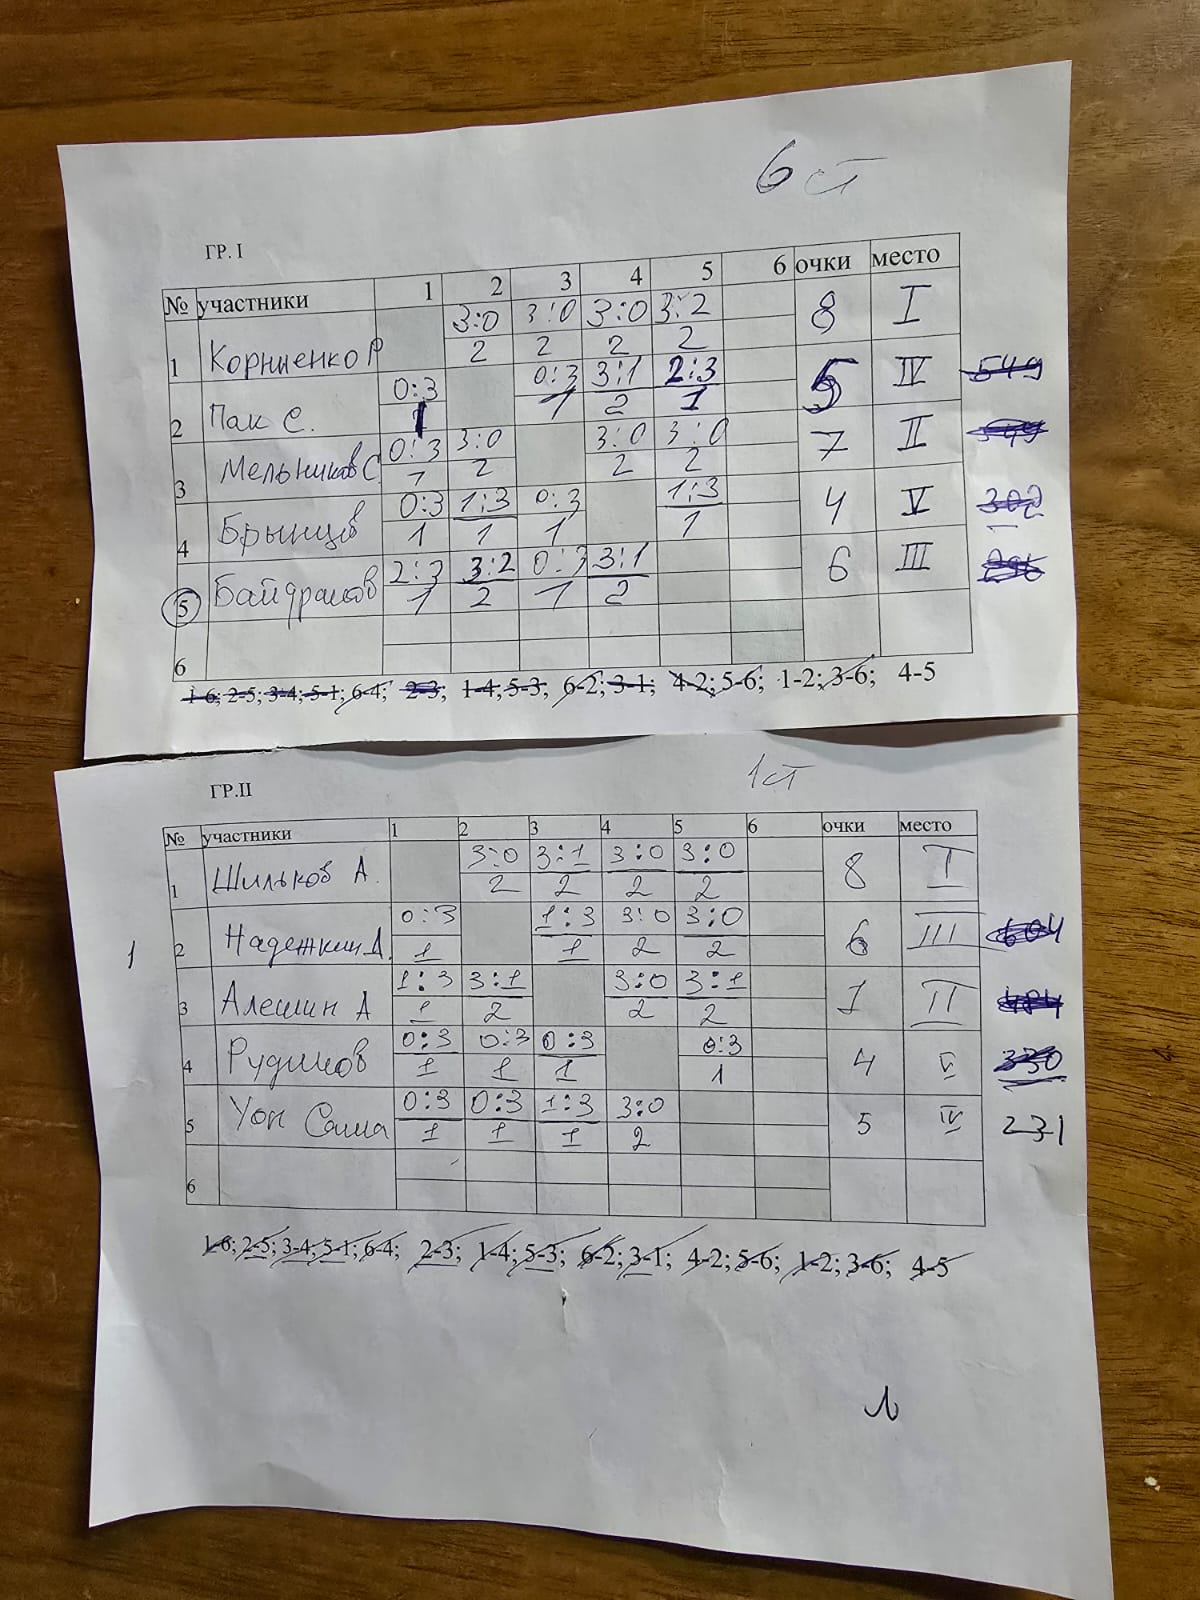 6 ст
ГР. I
№ участники 1 2 3 4 5 6 очки место
3:0 3:0 3:0 3:2
1 Корниенко Р 2 2 2 2 8 I
0:3 0:3 3:1 2:3
2 Пак С. 1 1 2 1 5 IV 549
0:3 3:0 3:0 3:0
3 Мельников С 1 2 2 2 7 II
0:3 1:3 0:3 1:3
4 Брынцев 1 1 1 1 4 V 302
2:3 3:2 0:3 3:1
5 1 2 1 2 6 III
6
1-6; 2-5; 3-4; 5-1; 6-4; 2-3; 1-4; 5-3; 6-2; 3-1; 4-2; 5-6; 1-2; 3-6; 4-5
1 ст
ГР.II
№ участники 1 2 3 4 5 6 очки место
3:0 3:1 3:0 3:0
1 Шильков А. 2 2 2 2 8 I
0:3 1:3 3:0 3:0
1 2 Надежкин А. 1 1 2 2 6 III 604
1:3 3:1 3:0 3:1
3 Алешин А 1 2 2 2 7 II
0:3 0:3 0:3 0:3
4 Рудиков 1 1 1 1 4 V 330
0:3 0:3 1:3 3:0
5 Саша 1 1 1 2 5 IV 231
6
1-6; 2-5; 3-4; 5-1; 6-4; 2-3; 1-4; 5-3; 6-2; 3-1; 4-2; 5-6; 1-2; 3-6; 4-5